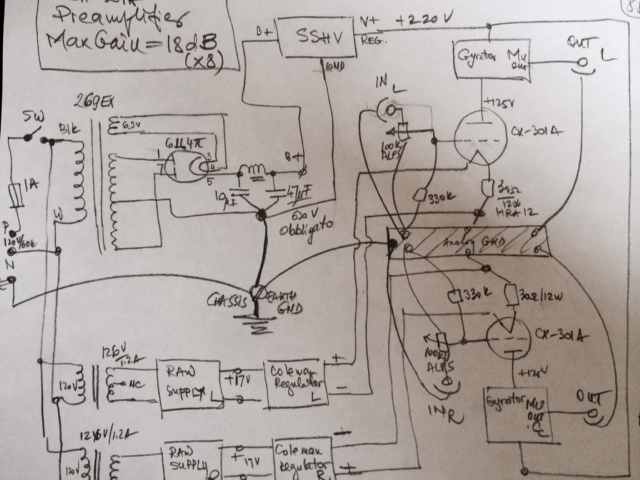 Preamplifier
Max Gain = 18dB
(x8)
B+
SSHV
GND
V+ +220V
REG.
Gyrator Mu
OUT
OUT
L
IN L
+125V
CX-301A
100K
ALPS
330K
30Ω
12W
269EX
SW
Blk
6.3V
B+
1A
P
120V/60
N
W
47µF
630V
Obbligato
Analog GND
CHASSIS
EARTH
GND
330K
30Ω/12W
CX-301A
100K
ALPS
IN R
+121V
Gyrator Mu
OUT
OUT
126V
1.2A
NC
120V
RAW
SUPPLY L
+17V
Coleman
Regulator
L
+
-
126V/1.2A
120V
RAW
SUPPLY R
+17V
Coleman
Regulator
R
+